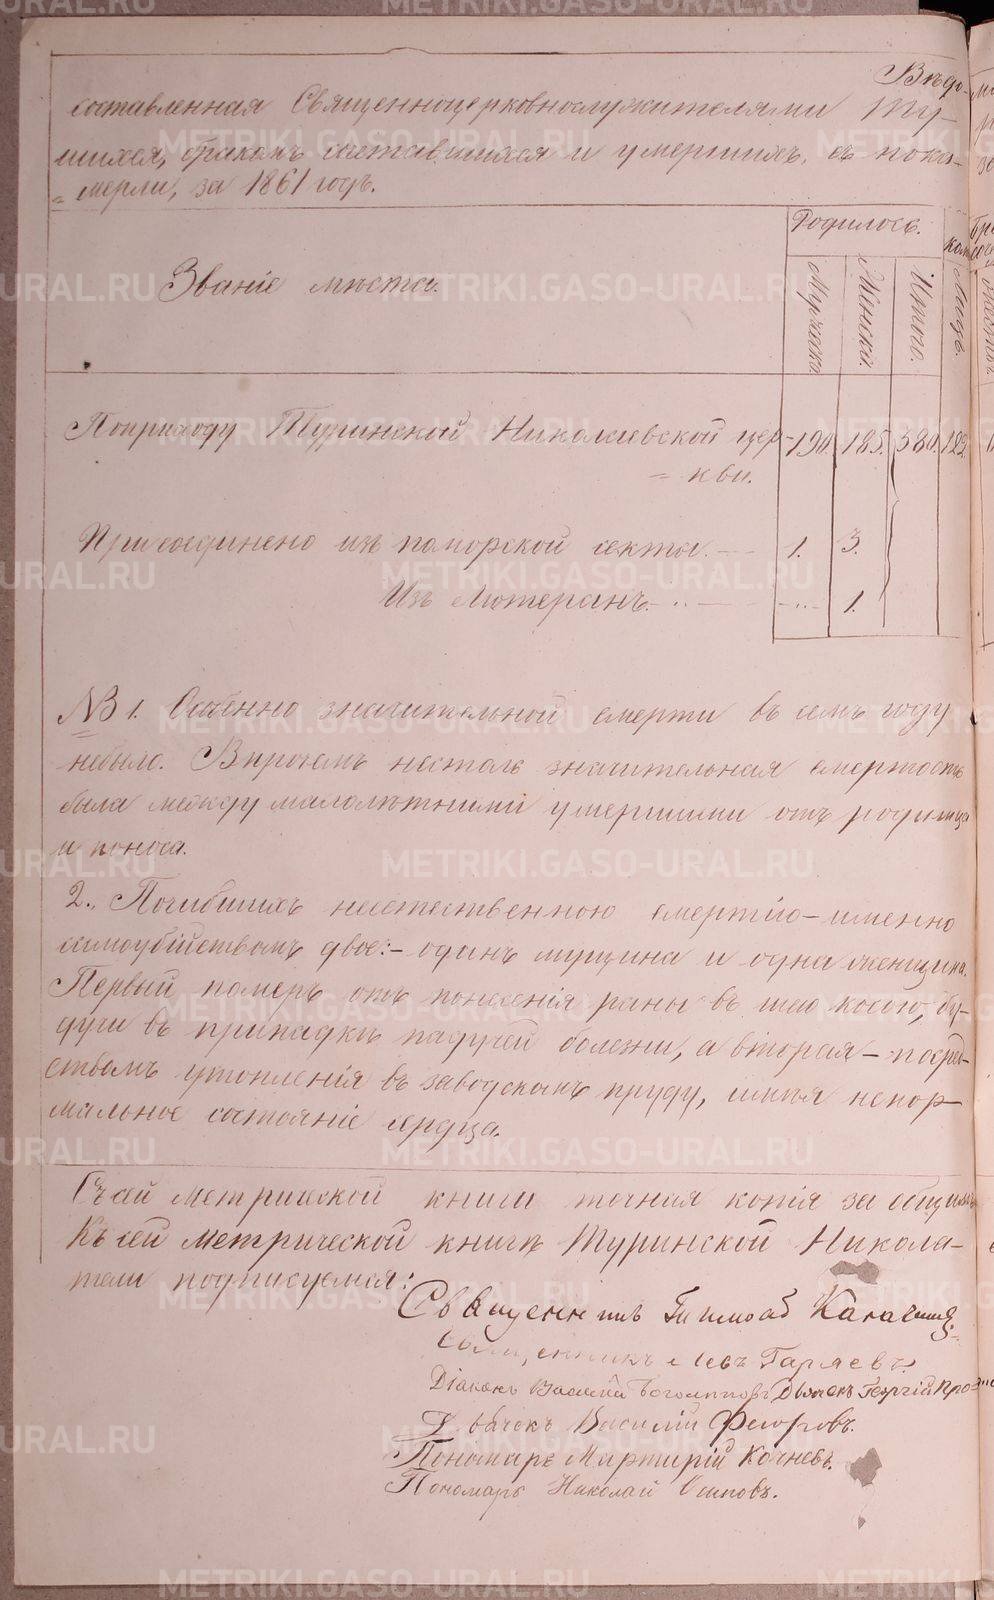 Вѣдо-
составленная Священноцерковнослужителями Ту-
шихся, бракомъ сочетавшихся и умершихъ, съ пока-
= мерли, за 1861 годъ.
Званіе мѣста.
Родилось.
Мужеска.
Женска.
Итого.
Поприходу Туринской Николаевской цер- 190. 185. 380. 182.
= кви.
Присоединено изъ поморской секты. -- 1. 3.
Изъ Лютеранъ. - .. - - ... 1.
NB 1. Особенно значительной смерти въ семъ году
небыло. Впрочемъ нестоль значительная смертость
была между малолѣтними умершими отъ родимца
и поноса.
2., Погибшихъ неестественною смертію - именно
самоубійствомъ двое: - одинъ мущина и одна женщина.
Первый померъ отъ понесенія раны въ шею косою, бу-
дучи въ припадкѣ падучей болезни, а вторая - посред-
ствомъ утопленія въ заводскомъ пруду, имѣя ненор-
мальное состояніе сердца.
Съ сей метрической книги точная копія за общимъ
Къ сей метрической книгѣ Туринской Никола-
тели подписуемся:
Священникъ
Священникъ Левъ Гаряевъ.
Діаконъ Василій Богомиповъ Дьячекъ Георгій Про-
Дьячекъ Василій Федоровъ.
Пономарь Мартирій Кочневъ.
Пономарь Николай Осиповъ.
METRIKI.GASO-URAL.RU